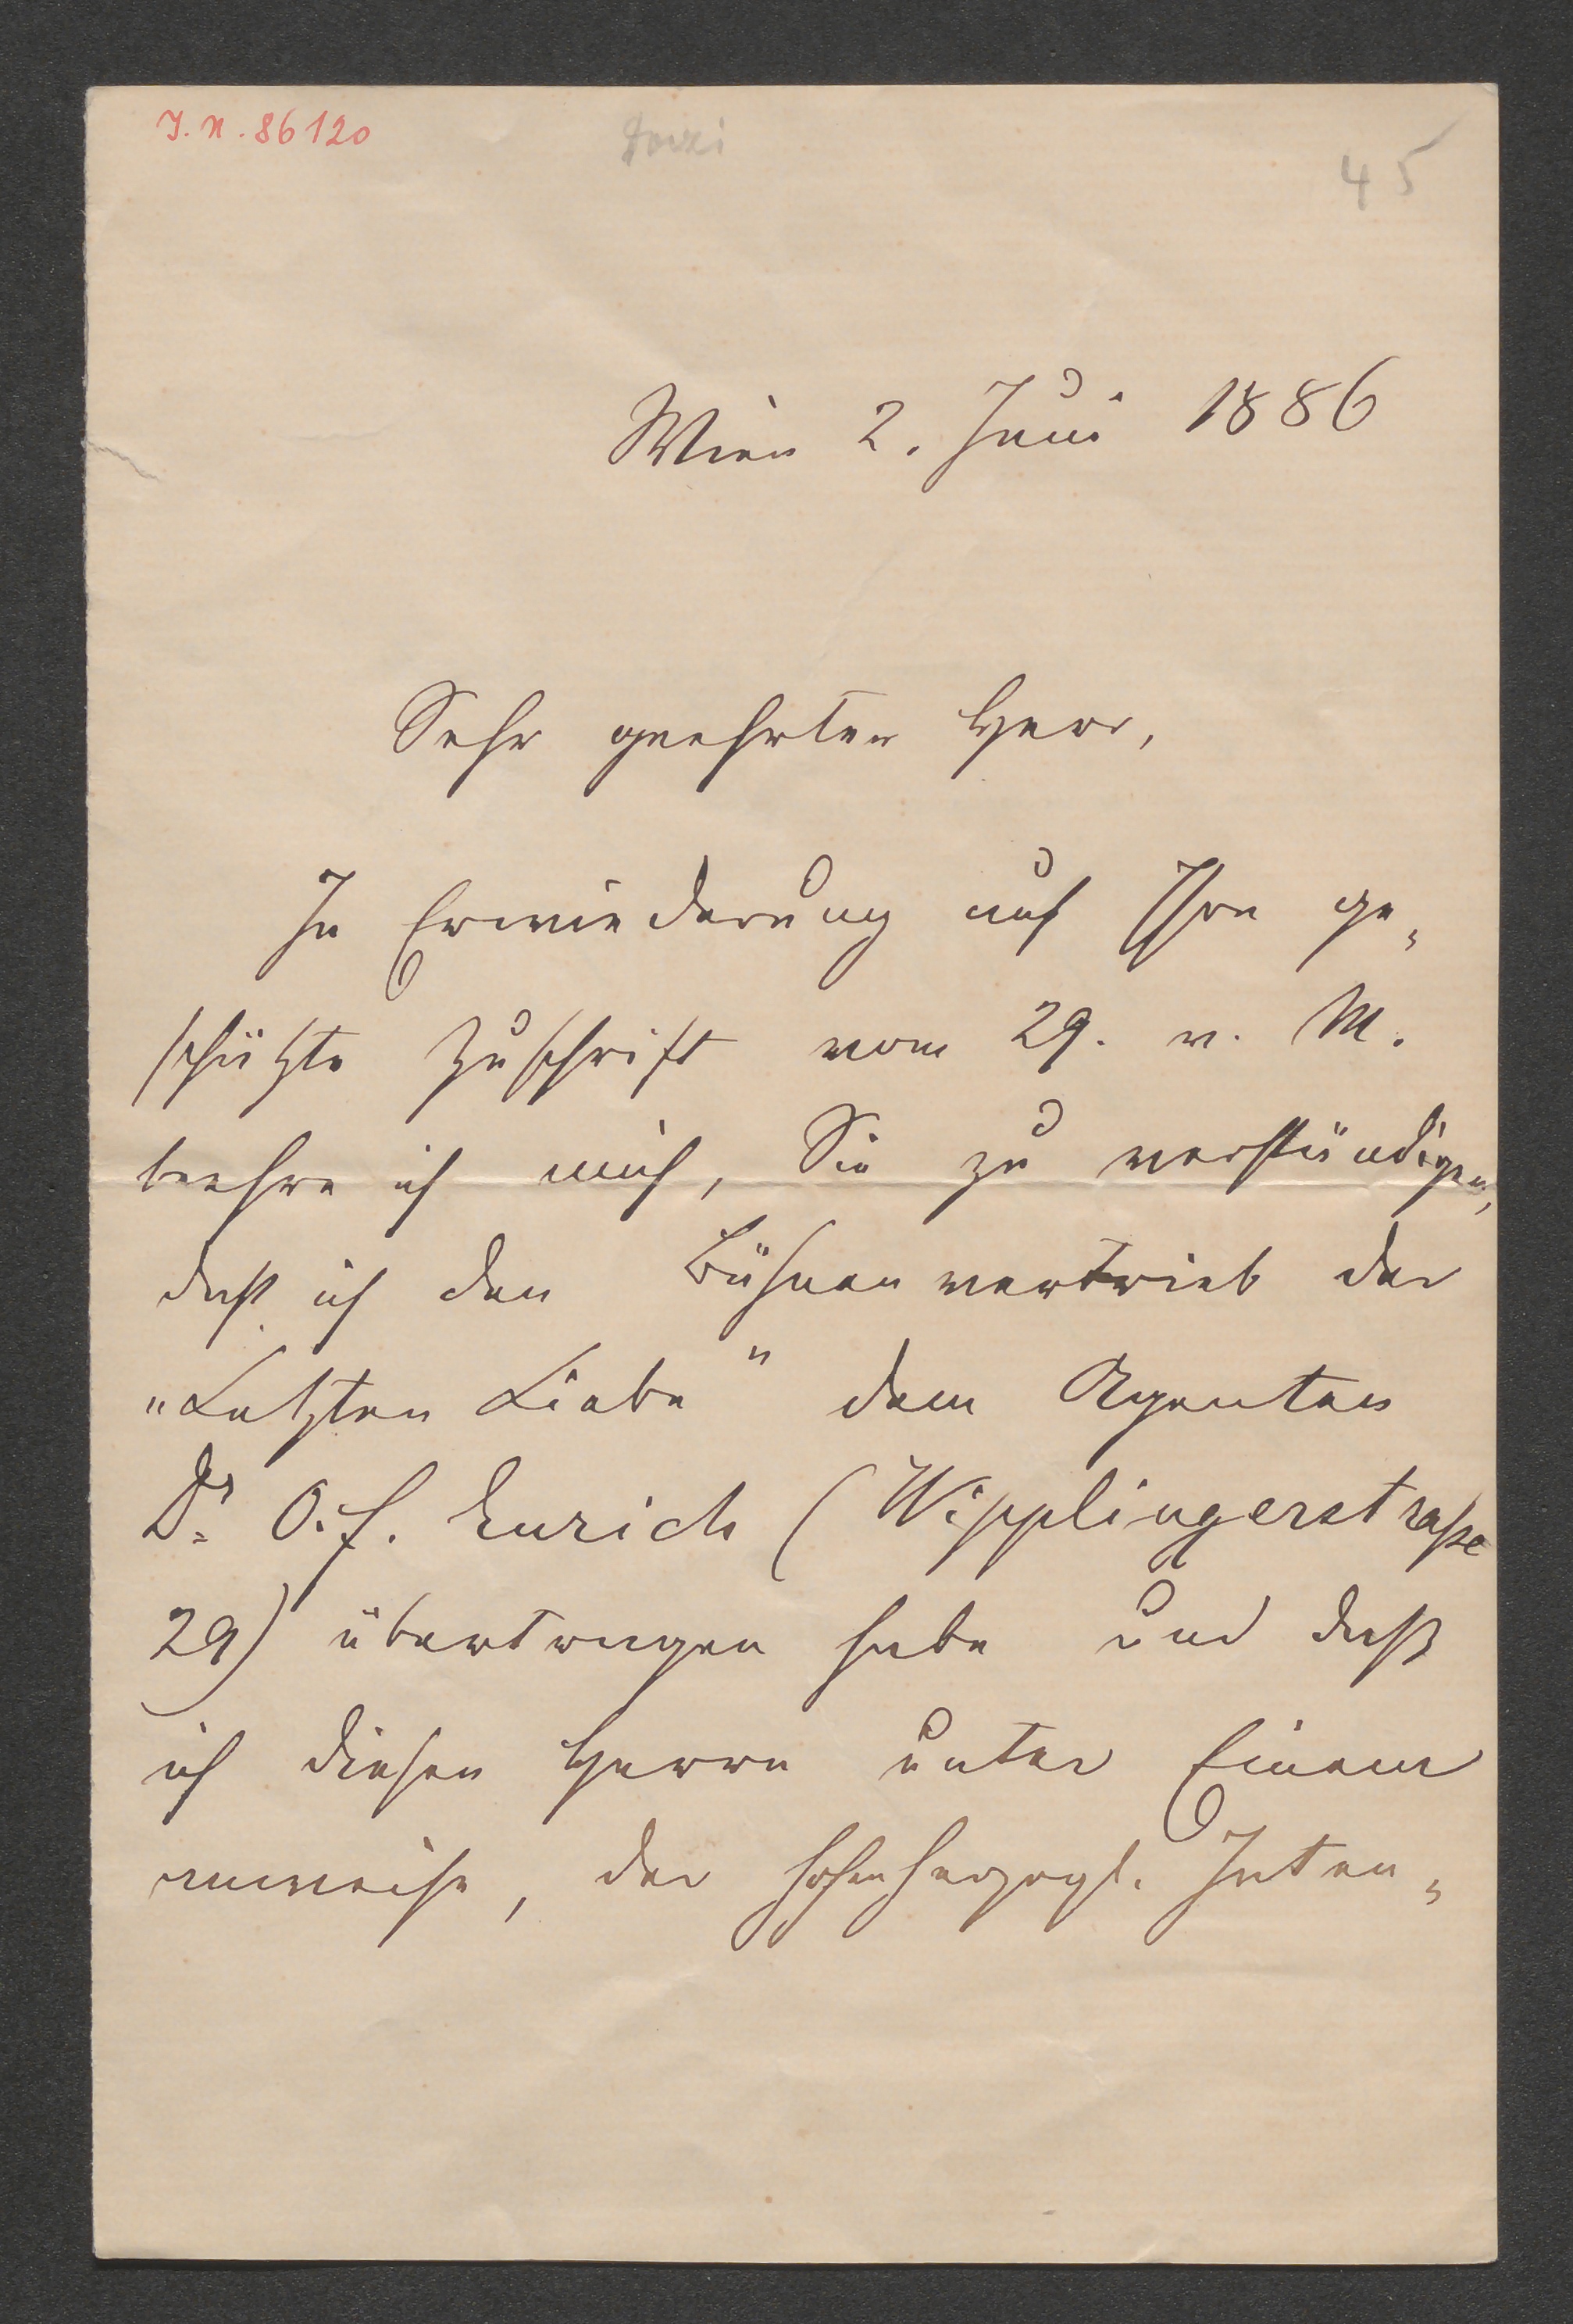 I. N. 86120
Doczi
45
Wien 2. Juni 1886
Sehr geehrter Herr,
In Erwiederung auf Ihre ge-
schätzte Zuschrift vom 29. v. M.
beehre ich mich, Sie zu verständigen,
daß ich den Bühnenvertrieb der
„Letzten Liebe" dem Agenten
Dr. O. F. Eirich (Wipplingerstraße
29) übertragen habe und daß
ich diesen Herrn unter Einem
anweise, der herzogl. Inten-